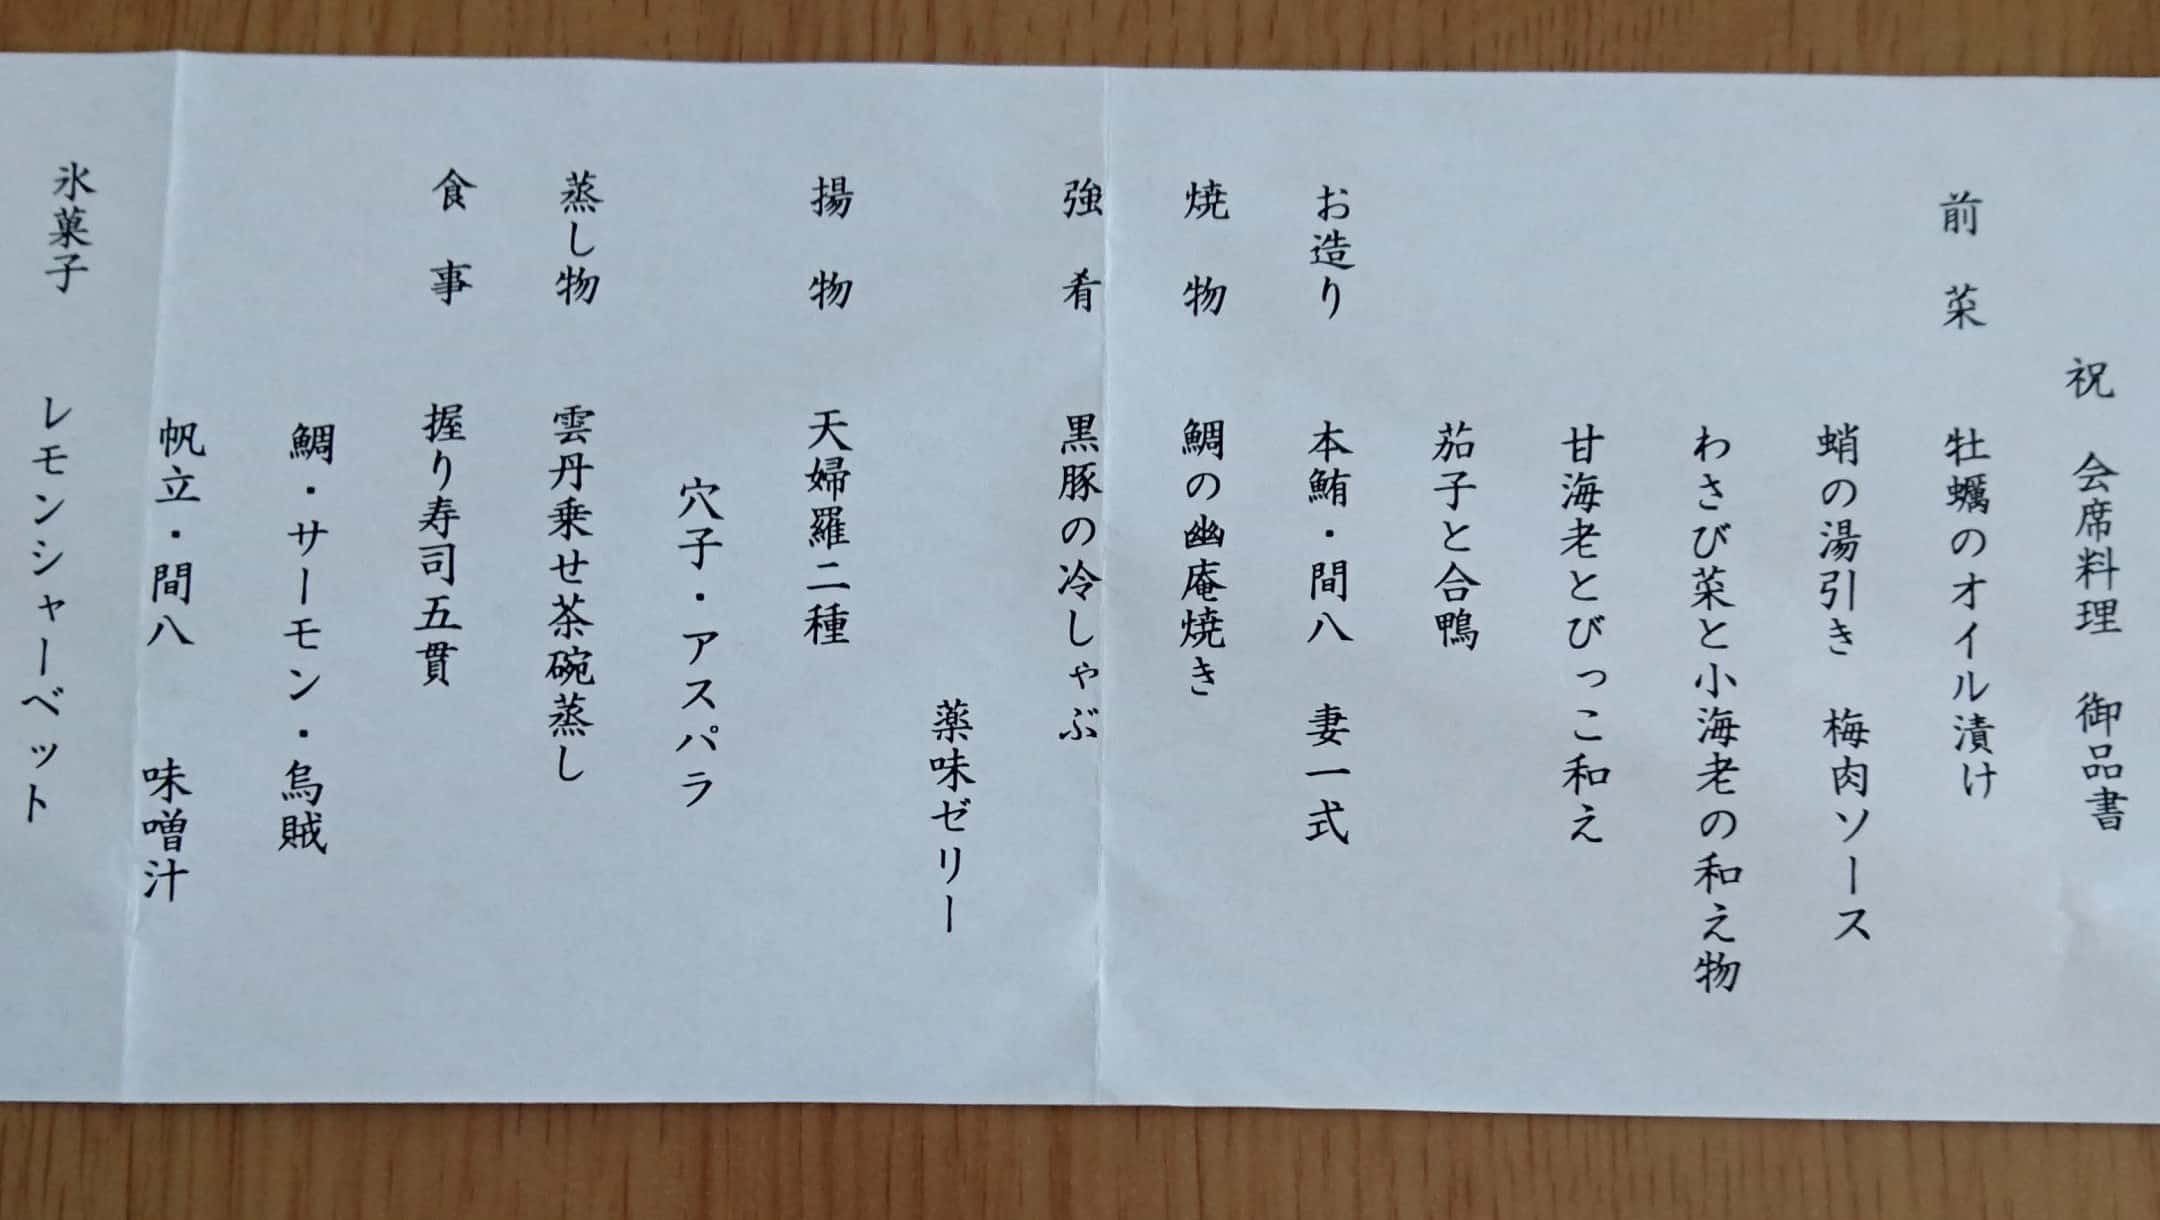 祝 会席料理 御品書
前菜 牡蠣のオイル漬け
蛸の湯引き 梅肉ソース
わさび菜と小海老の和え物
甘海老とびっこ和え
茄子と合鴨
お造り 本鮪・間八 妻一式
焼物 鯛の幽庵焼き
強肴 黒豚の冷しゃぶ
薬味ゼリー
揚物 天婦羅二種
穴子・アスパラ
蒸し物 雲丹乗せ茶碗蒸し
食事 握り寿司五貫
鯛・サーモン・烏賊
帆立・間八 味噌汁
氷菓子 レモンシャーベット